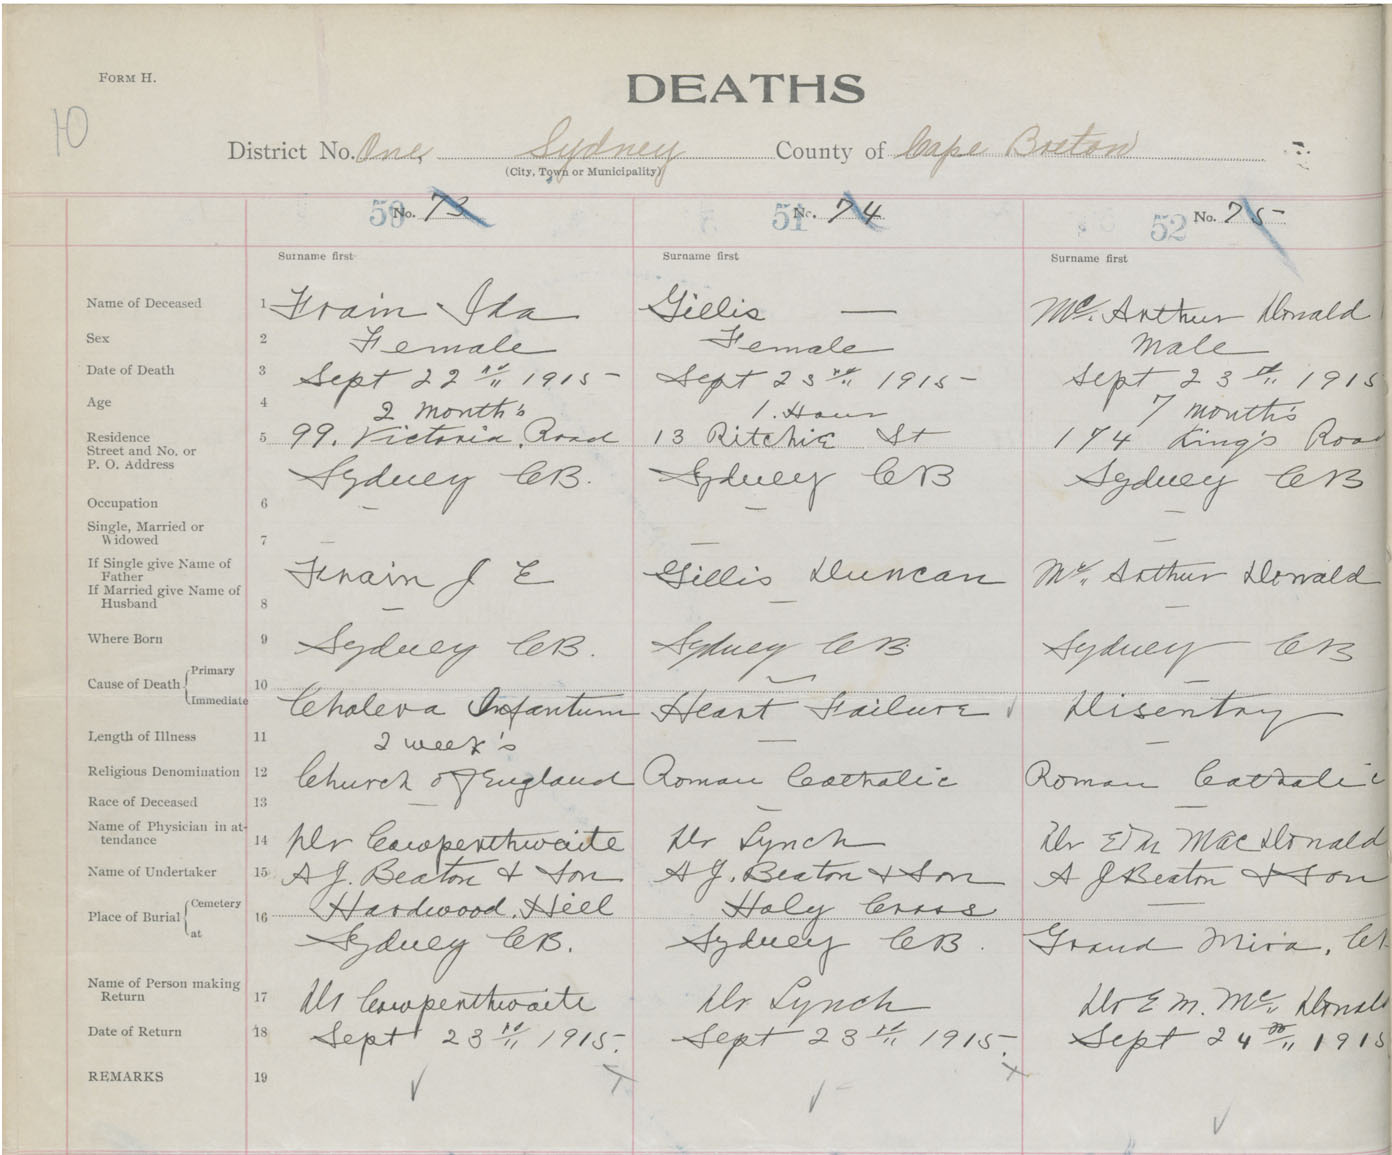 FORM H.
DEATHS
10
District No. One Sydney County of Cape Breton
(City, Town or Municipality)
50 No. 73 51 No. 74 52 No. 75
Surname first Surname first Surname first
Name of Deceased 1 Frain Ida Gillis — Mc. Arthur Donald
Sex 2 Female Female Male
Date of Death 3 Sept 22nd 1915 Sept 23rd 1915 Sept 23rd 1915
Age 4 2 month's 1. Hour 7 month's
Residence 5 99. Victoria. Road 13 Ritchie St 174 King's Road
Street and No. or
P. O. Address Sydney CB. Sydney CB Sydney CB
Occupation 6 — — —
Single, Married or
Widowed 7 — — —
If Single give Name of
Father Frain J E Gillis Duncan Mc. Arthur Donald
If Married give Name of
Husband 8 — — —
Where Born 9 Sydney CB. Sydney CB. Sydney CB
Cause of Death Primary 10 — —
Immediate Cholera Infantum Heart Failure Disentry
Length of Illness 11 2 week's — —
Religious Denomination 12 Church of England Roman Catholic Roman Catholic
Race of Deceased 13 — — —
Name of Physician in at-
tendance 14 Dr Cowpenthwaite Dr Lynch Dr E M MacDonald
Name of Undertaker 15 A J. Beaton & Son A J. Beaton & Son A J Beaton & Son
Place of Burial Cemetery 16 Hardwood. Hill Holy Cross —
at Sydney CB. Sydney CB. Grand Mira, CB
Name of Person making
Return 17 Dr Cowpenthwaite Dr Lynch Dr E M. Mc Donald
Date of Return 18 Sept 23rd 1915. Sept 23rd 1915. Sept 24th 1915
REMARKS 19